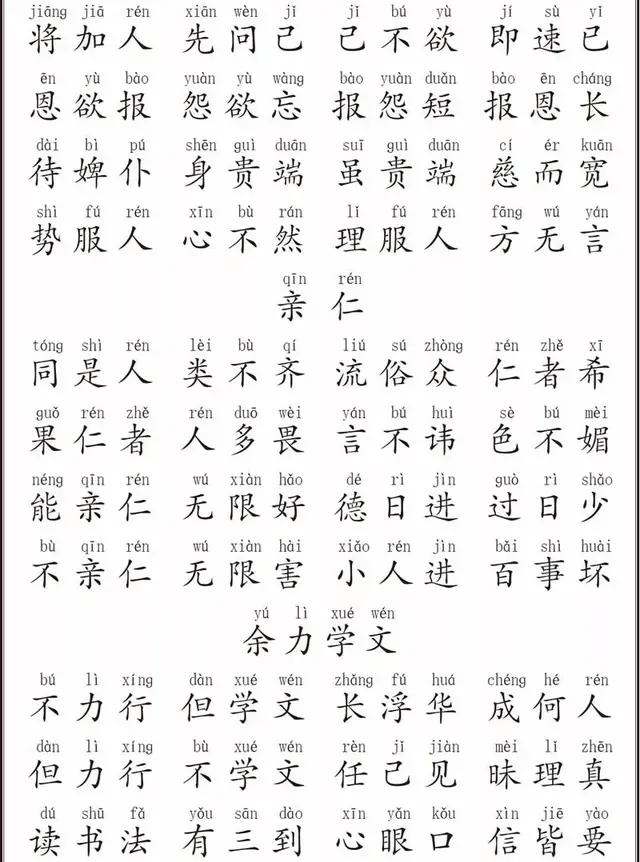 jiāng jiā rén xiān wèn jǐ jǐ bú yù jí sù yǐ
将加人 先问己 己不欲 即速已
ēn yù bào yuàn yù wàng bào yuàn duǎn bào ēn cháng
恩欲报 怨欲忘 报怨短 报恩长
dài bì pú shēn guì duān suī guì duān cí ér kuān
待婢仆 身贵端 虽贵端 慈而宽
shì fú rén xīn bù rán lǐ fú rén fāng wú yán
势服人 心不然 理服人 方无言
qīn rén
亲仁
tóng shì rén lèi bù qí liú sú zhòng rén zhě xī
同是人 类不齐 流俗众 仁者希
guǒ rén zhě rén duō wèi yán bú huì sè bú mèi
果仁者 人多畏 言不讳 色不媚
néng qīn rén wú xiàn hǎo dé rì jìn guò rì shǎo
能亲仁 无限好 德日进 过日少
bù qīn rén wú xiàn hài xiǎo rén jìn bǎi shì huài
不亲仁 无限害 小人进 百事坏
yú lì xué wén
余力学文
bú lì xíng dàn xué wén zhǎng fú huá chéng hé rén
不力行 但学文 长浮华 成何人
dàn lì xíng bù xué wén rèn jǐ jiàn mèi lǐ zhēn
但力行 不学文 任己见 昧理真
dú shū fǎ yǒu sān dào xīn yǎn kǒu xìn jiē yào
读书法 有三到 心眼口 信皆要